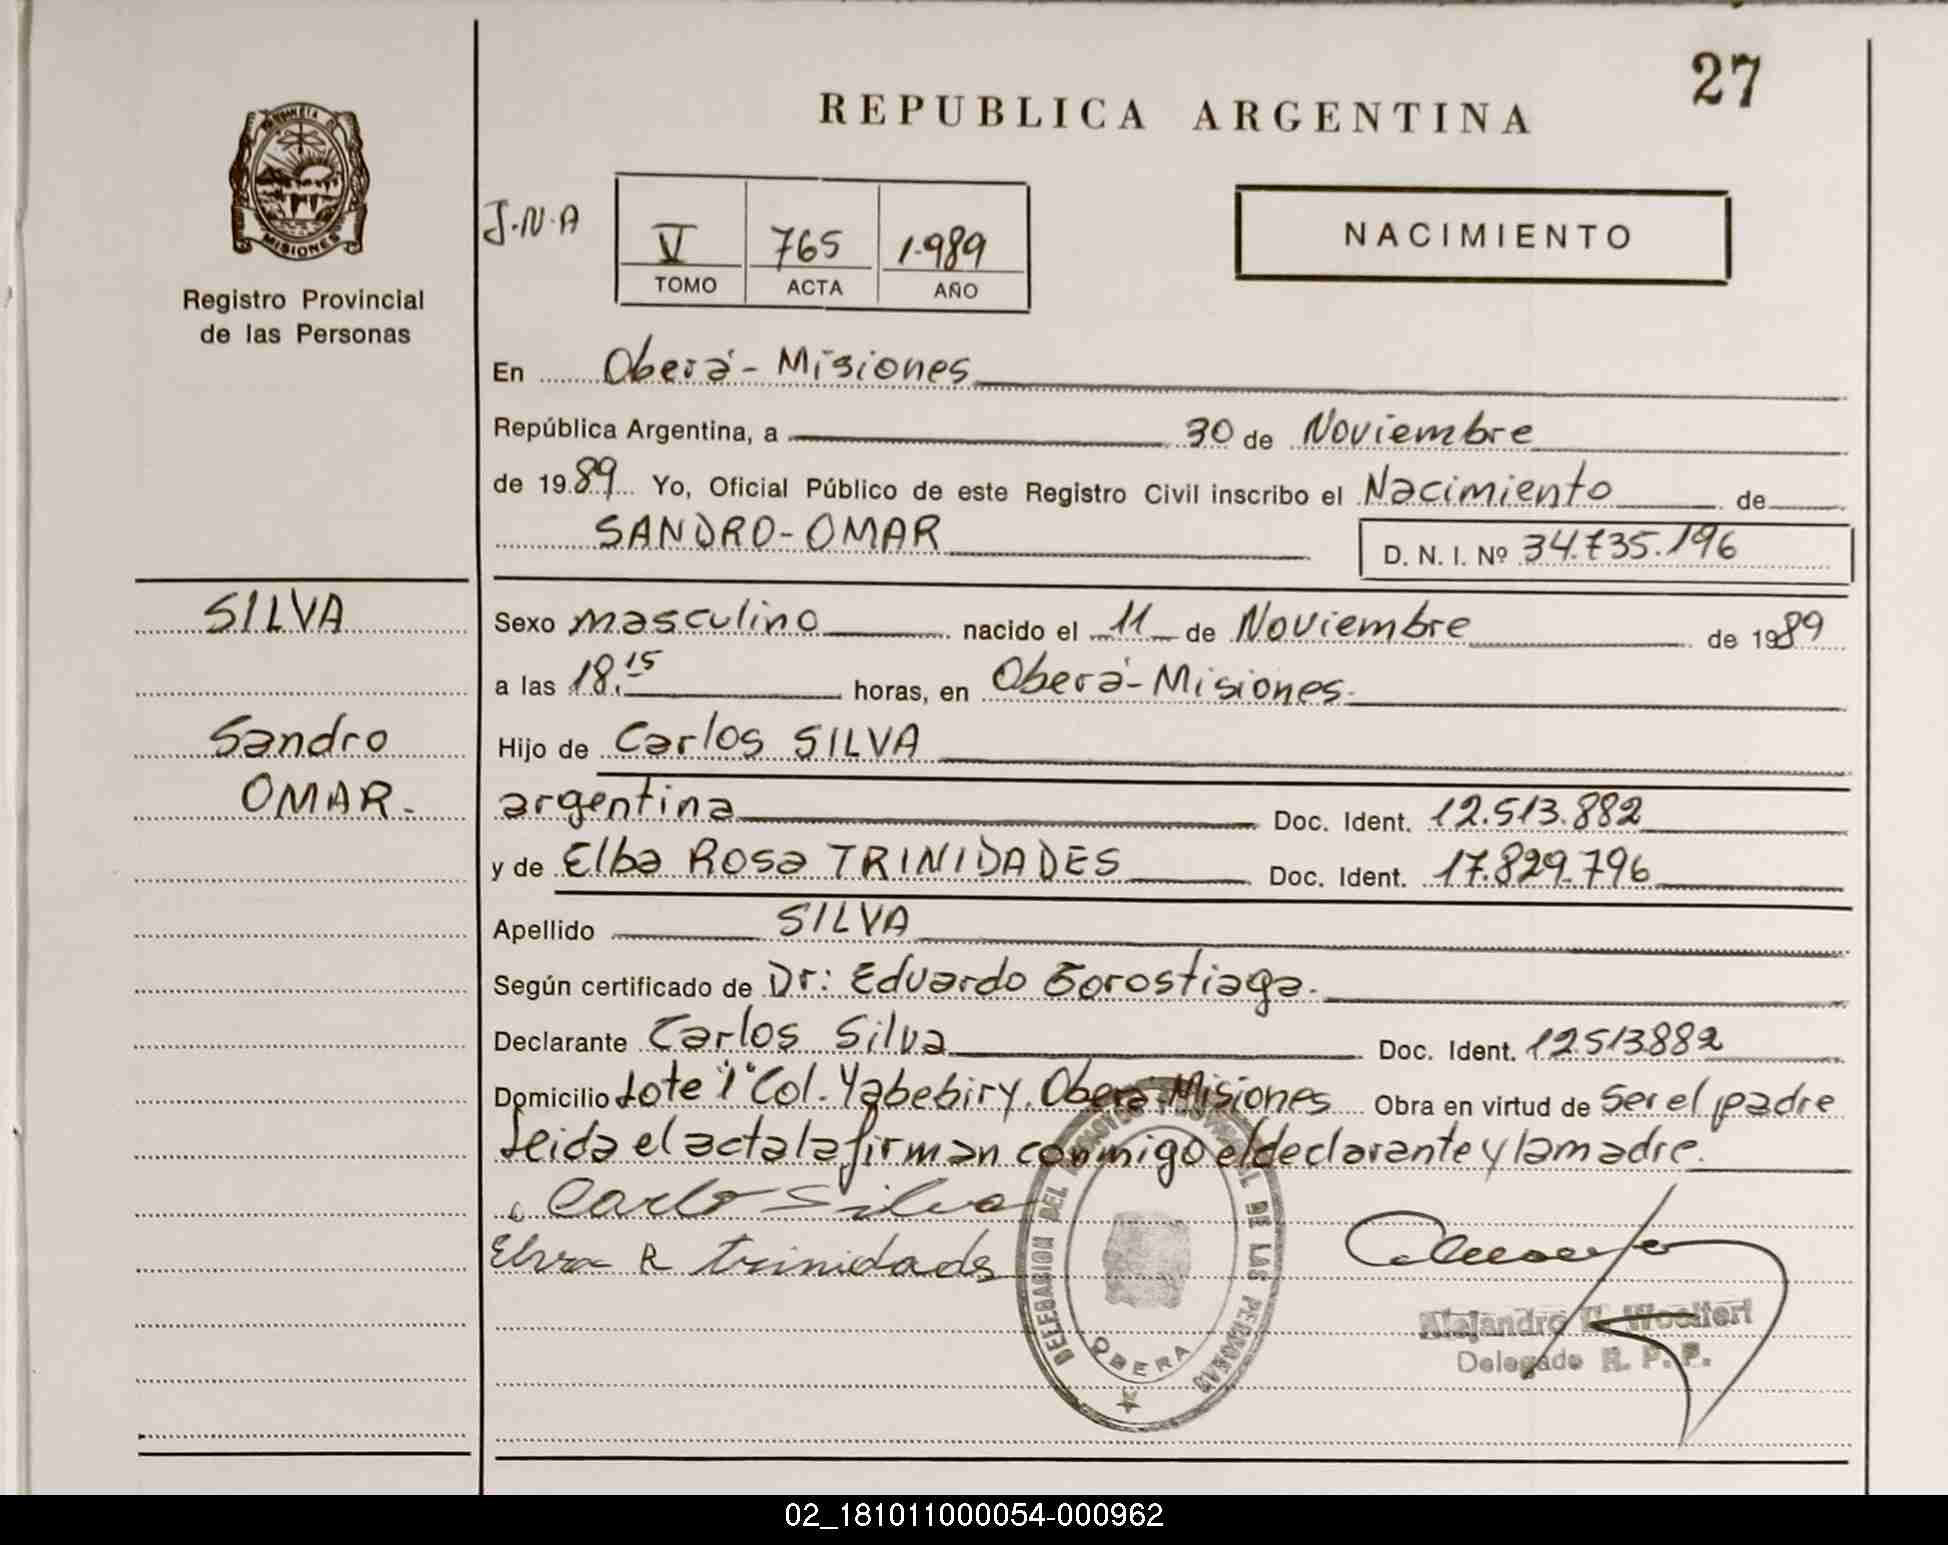 27
REPUBLICA ARGENTINA
PROVINCIA DE
MISIONES
Registro Provincial
de las Personas
J.N.A
V 765 1.989
TOMO ACTA AÑO
NACIMIENTO
En Oberá - Misiones
República Argentina, a 30 de Noviembre
de 1989 Yo, Oficial Público de este Registro Civil inscribo el Nacimiento de
SANDRO-OMAR D. N. I. Nº 34.735.196
SILVA
Sandro
OMAR.
Sexo masculino nacido el 11 de Noviembre de 1989
a las 18.15 horas, en Oberá - Misiones.
Hijo de Carlos SILVA
argentina Doc. Ident. 12.513.882
y de Elba Rosa TRINIDADES Doc. Ident. 17.829.796
Apellido SILVA
Según certificado de Dr: Eduardo Gorostiaga.
Declarante Carlos Silva Doc. Ident. 12513882
Domicilio Lote "1" Col. Yabebiry. Oberá Misiones Obra en virtud de ser el padre
Leida el acta la firman conmigo el declarante y la madre.
Carlo Silva
Elva R trinidads
DELEGACION DEL REGISTRO PROVINCIAL DE LAS PERSONAS
OBERA
Alejandro
Delegado R. P. P.
02_181011000054-000962